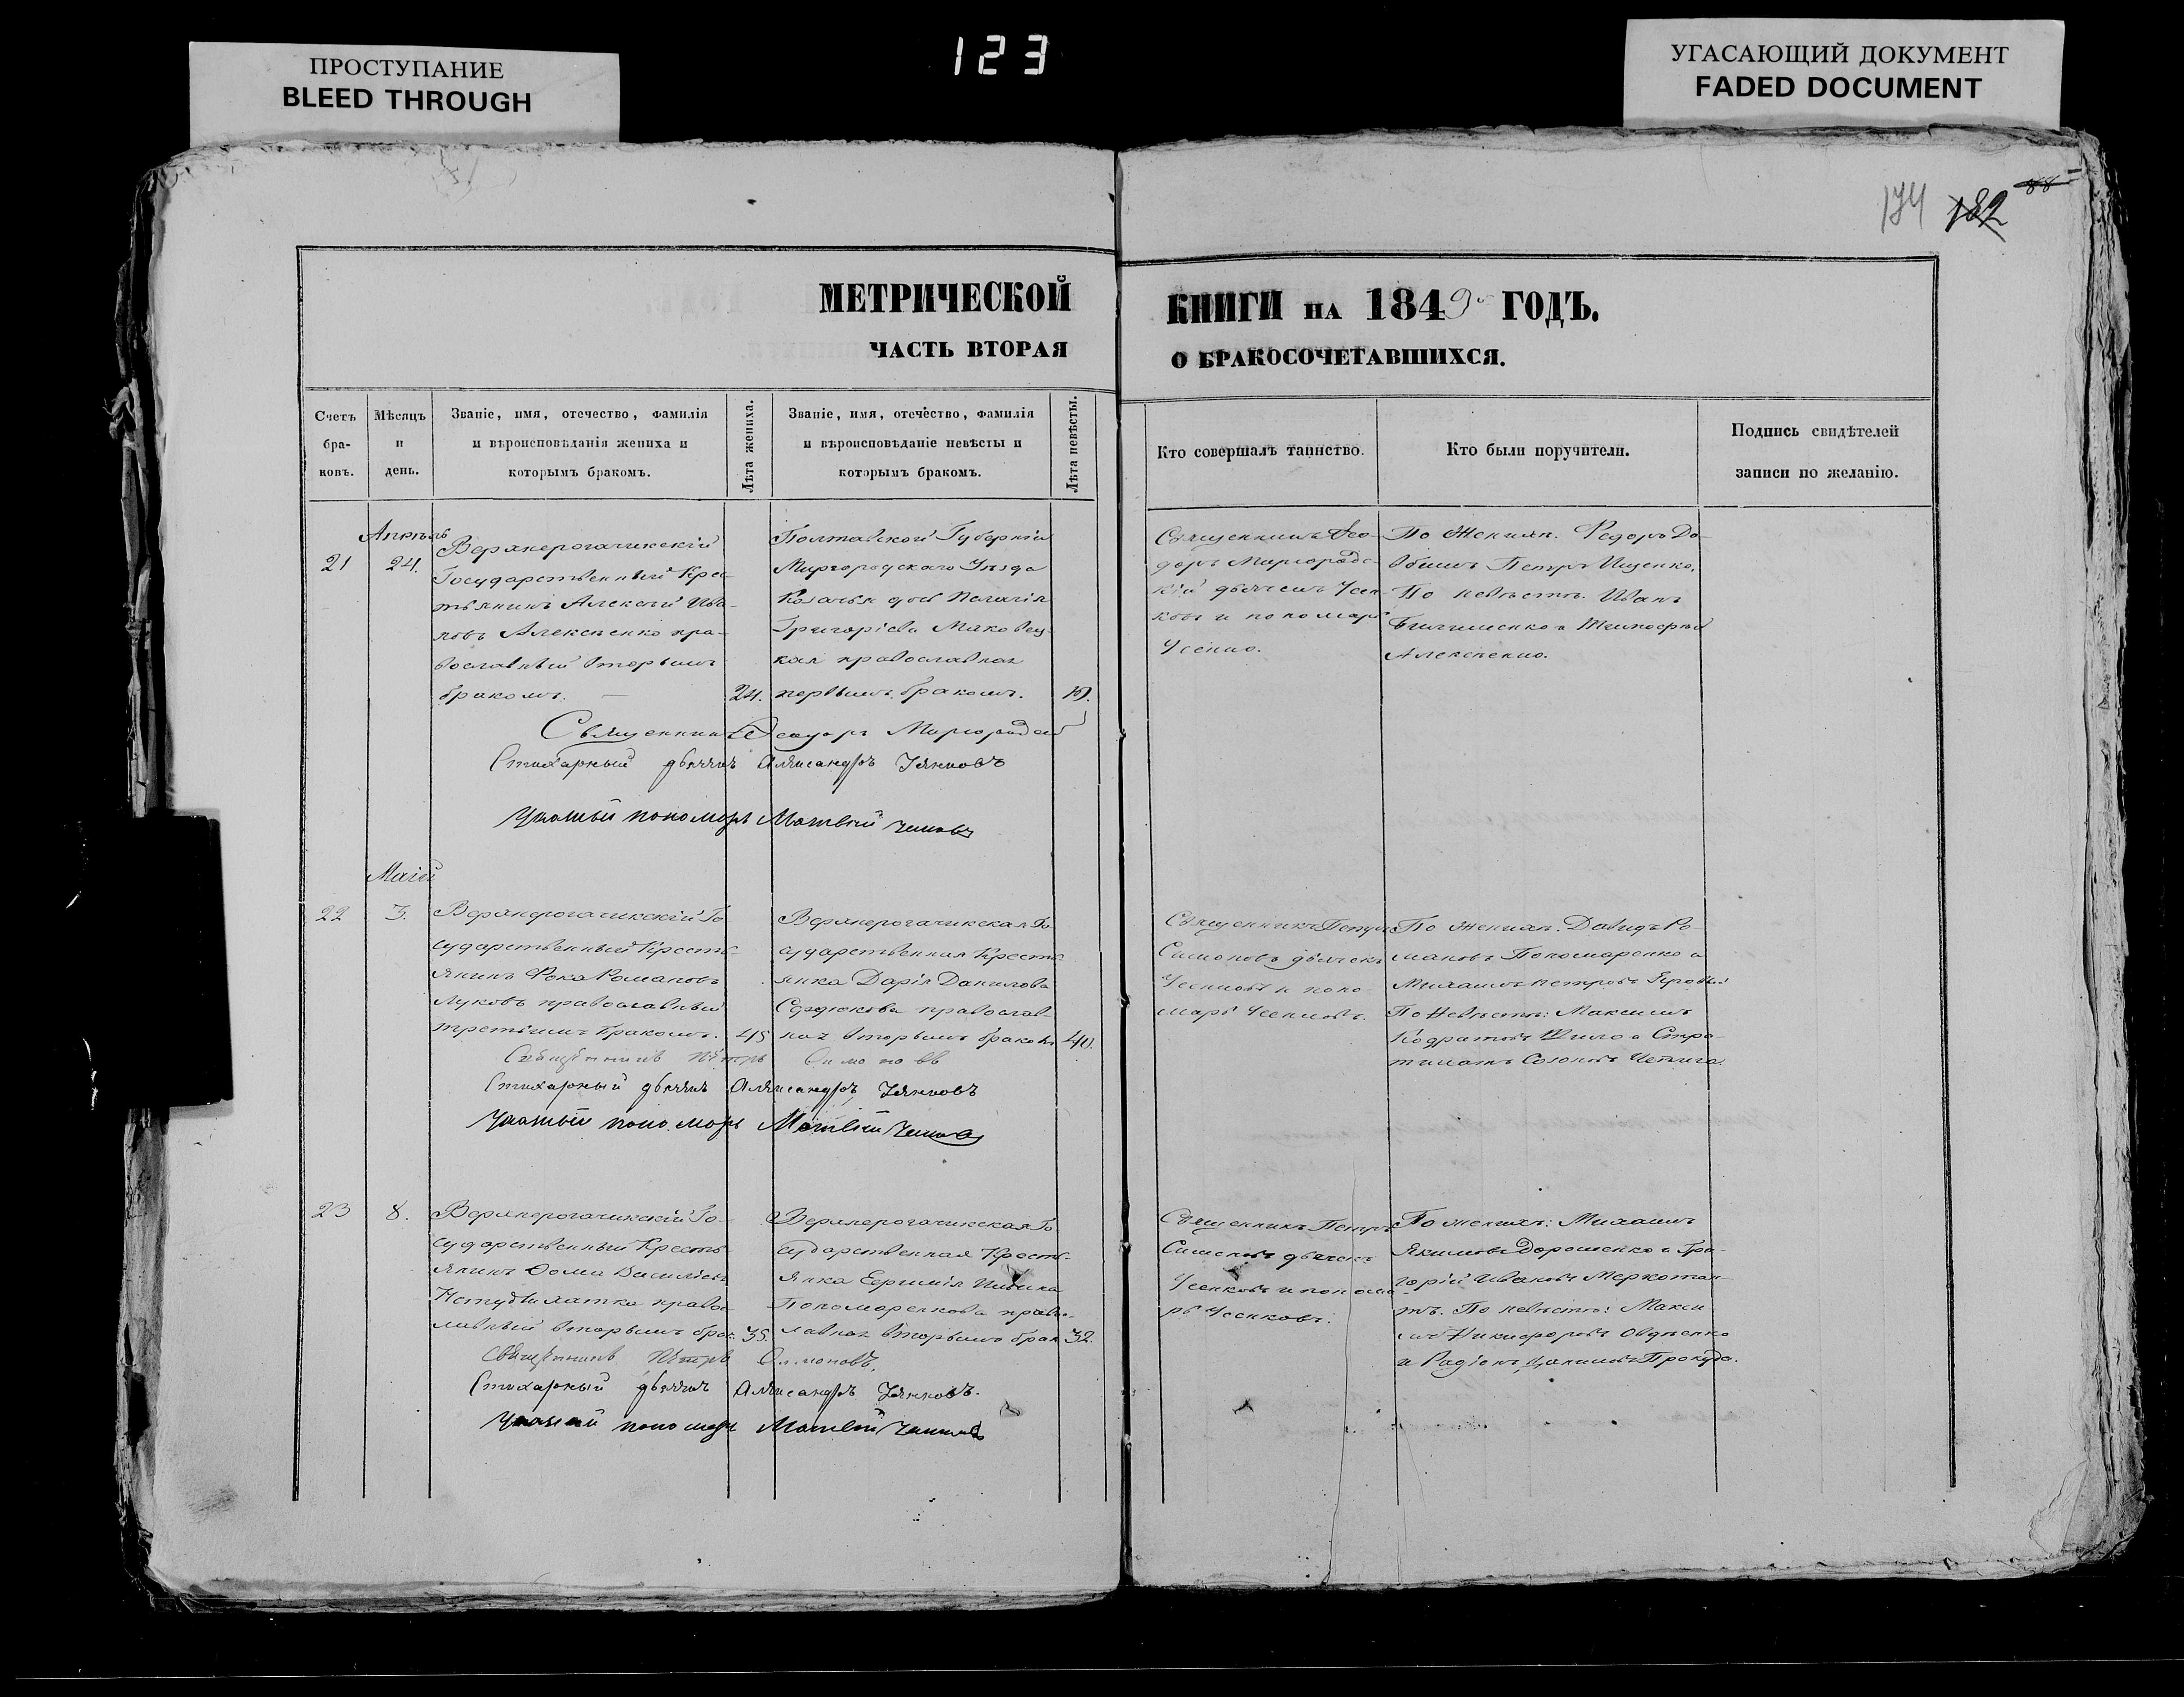 ПРОСТУПАНИЕ
BLEED THROUGH
123
УГАСАЮЩИЙ ДОКУМЕНТ
FADED DOCUMENT
174 182 88
МЕТРИЧЕСКОЙ КНИГИ НА 1849 ГОДЪ.
ЧАСТЬ ВТОРАЯ О БРАКОСОЧЕТАВШИХСЯ.
Счетъ
бра-
ковъ.
Мѣсяцъ
и
день.
Званіе, имя, отечество, фамилія
и вѣроисповѣданія жениха и
которымъ бракомъ.
Лѣта жениха.
Званіе, имя, отечество, фамилія
и вѣроисповѣданіе невѣсты и
которымъ бракомъ.
Лѣта невѣсты.
Кто совершалъ таинство.
Кто были поручители.
Подпись свидѣтелей
записи по желанію.
21
Апрѣль
24.
Верхнерогачикскій
Государственный Крес-
тьянинъ Алексій Ива-
новъ Алексеенко пра-
вославный вторымъ
бракомъ.
24.
Полтавской Губерніи
Миргородскаго Уѣзда
Козачья дочь Пелагія
Григоріева Маковец-
кая православная
первымъ бракомъ.
19.
Священникъ Ѳео-
доръ Миргородс-
кій дьячекъ Усен-
ковъ и пономарь
Усенко.
По Женихѣ. Федоръ До-
Петръ Ищенко.
По невѣстѣ. Иванъ
Алексеенко.
Священникъ Ѳеодоръ Миргородскій
Стихарный дьячекъ Александръ Усенковъ
пономарь Матвѣй
22
Маій
3.
Верхнерогачикскій Го-
сударственный Кресть-
янинъ Фока Романовъ
Луковъ православный
третьимъ бракомъ.
45
Верхнерогачикская Го-
сударственная Кресть-
янка Дарія Данилова
Сердюкова православ-
ная вторымъ бракомъ
40.
Священникъ Петръ
Симоновъ дьячекъ
Усенковъ и поно-
марь Усенковъ.
По женихѣ. Давидъ Ро-
мановъ Пономаренко и
Михаилъ Петровъ
По Невѣстѣ: Максимъ
Священникъ Петръ Симоновъ
Стихарный дьячекъ Александръ Усенковъ
пономарь Матвѣй
23
8.
Верхнерогачикскій Го-
сударственный Кресть-
янинъ Ѳома Васильевъ
правос-
лавный вторымъ брак.
35.
Верхнерогачикская Го-
сударственная Кресть-
янка Евфимія
Пономаренкова правос-
лавная вторымъ брак.
32.
Священникъ Петръ
Симоновъ дьячекъ
Усенковъ и понома-
рь Усенковъ.
По женихѣ: Михаилъ
Якимовъ Дорошенко и Гри-
горій Ивановъ
По невѣстѣ: Макси-
мъ Никифоровъ
и Радіонъ
Священникъ Петръ Симоновъ.
Стихарный дьячекъ Александръ Усенковъ.
пономарь Матвѣй